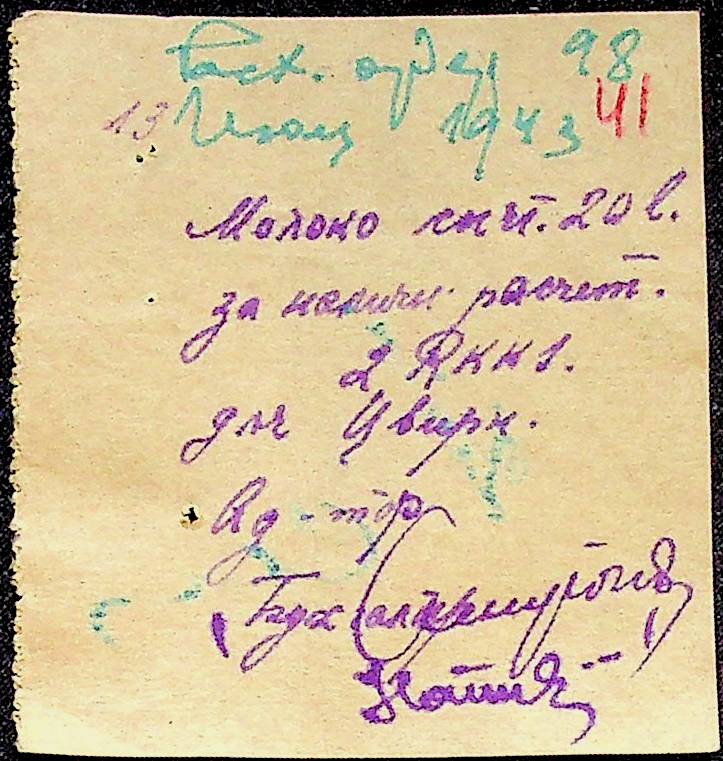 Расх. ордер 98
13 Июля 1943 41
Молоко снят. 20 л.
за наличн. расчет.
2 Rkk1.
для Цвирк.
Ад-тор
Бух